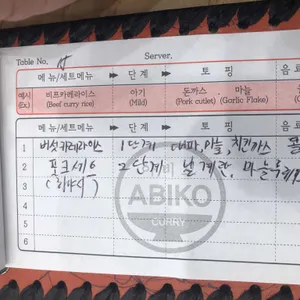 Table No. Server.
메뉴/세트메뉴 단계 토핑
예시 비프카레라이스 아기 돈까스 마늘
(Ex) (Beef curry rice) (Mild) (Pork cutlet) (Garlic Flake)
메뉴/세트메뉴 단계 토핑 음료
1 버섯카레라이스 1단계 대파,마늘,치킨가스
2 포크세6 2단계 날계란, 마늘후레
3 (하야시)
4
5
6
ABIKO
CURRY